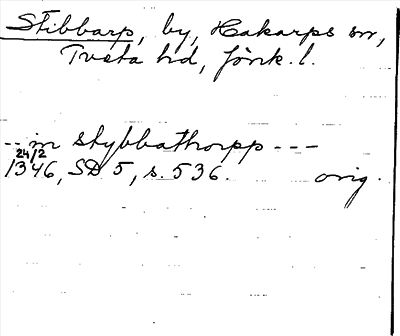 Stibbarp, by, Hakarps sn,
Tveta hd, Jönk. l.
-- in stybbathorpp ---
24/2
1346, SD 5, s. 536. orig.